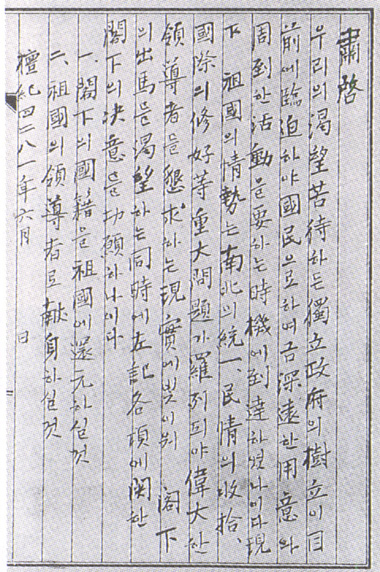 肅啓
우리의渴望苦待하든獨立政府의樹立이目
前에臨迫하야國民으로하여금深遠한用意와
周到한活動을要하는時機에到達하엿나이다現
下祖國의情勢는南北의統一、民情의收拾、
國際의修好等重大問題가羅列되야偉大한
領導者를懇求하는現實에빗이워 閣下
의出馬을渴望하는同時에左記各項에關한
閣下의決意을功願하나이다
一、閣下의國籍을祖國에還元하실것
二、祖國의領導者로獻身하실것
檀紀四二八一年六月 日